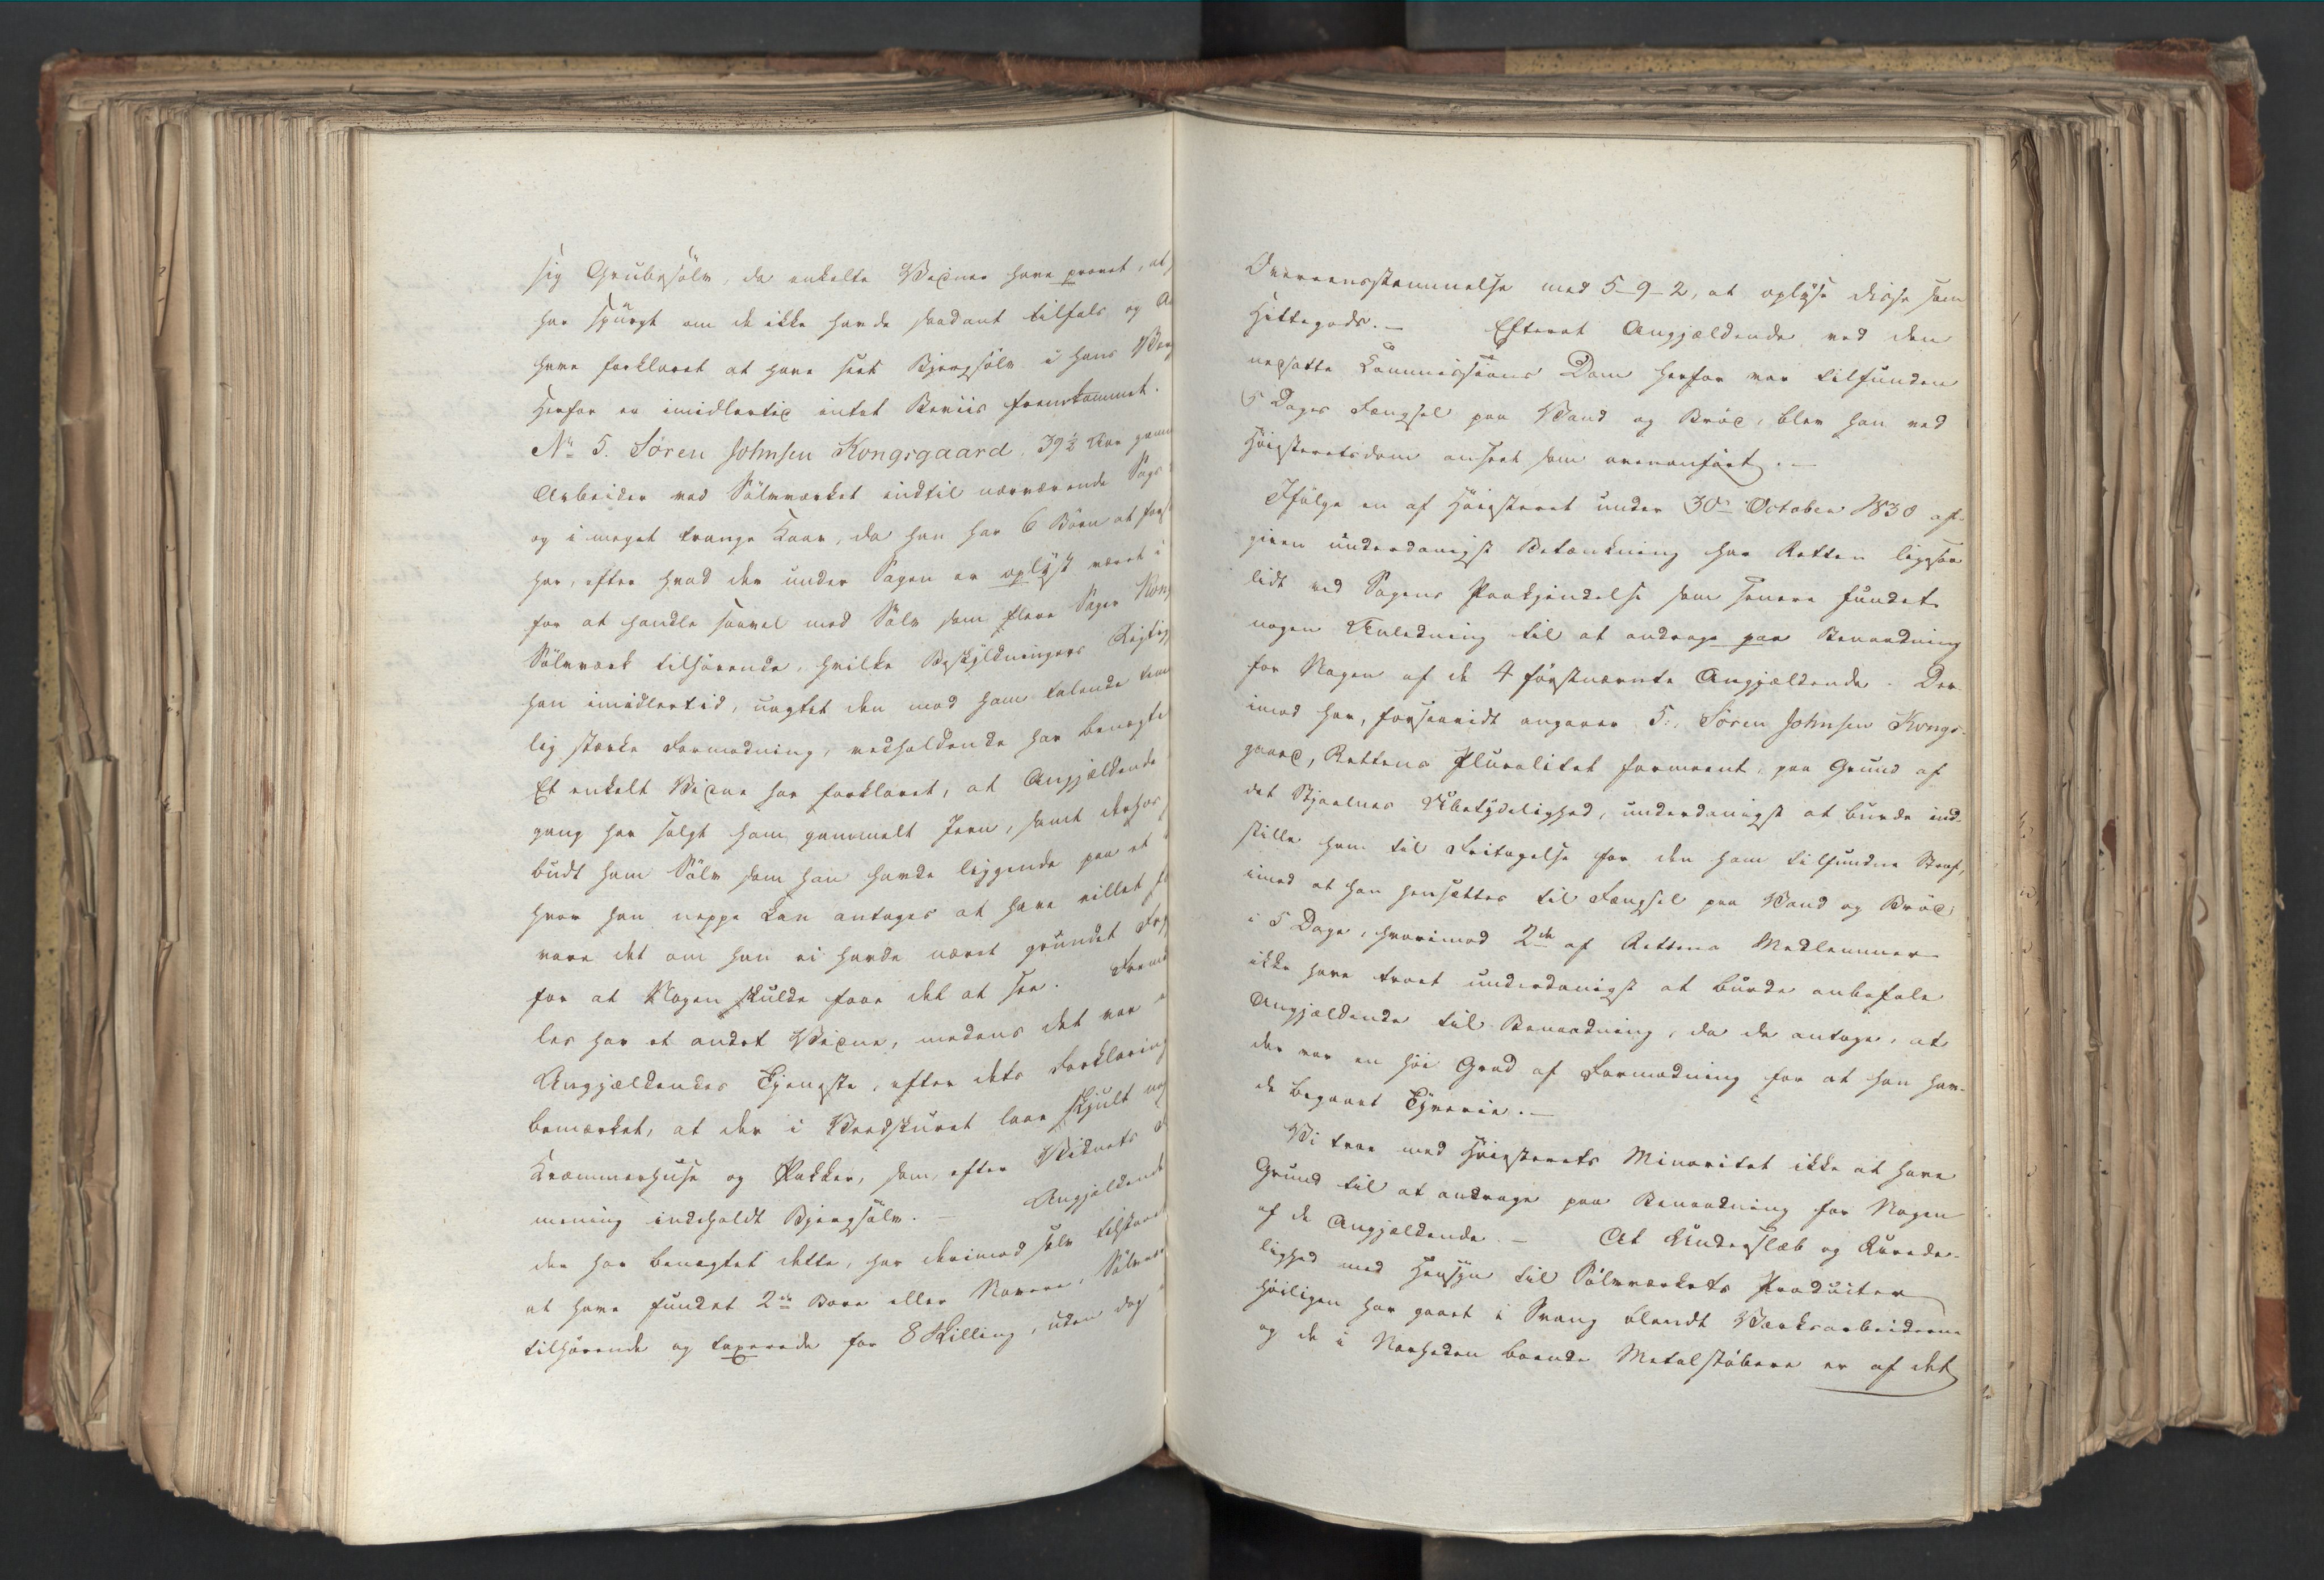 sig Grubesølv, da enkelte Vidner have provet, at
har spurgt om de ikke havde saadant tilfals og A
have forklaret at have seet Bjergsølv i hans Væ
Herfor er imidlertid intet Beviis fremkommet.
No 5. Søren Johnsen Kongsgaard, 39½ Aar gam
Arbeider ved Sølvværket indtil nærværende Sags
og i meget trange Kaar, da han har 6 Børn at fors
har, efter hvad der under Sagen er oplyst været i
for at handle saavel med Sølv som flere Sager Kong
Sølvværk tilhørende, hvilke Beskyldningers Rigtig
han imidlertid, uagtet den mod ham talende tem
lig stærke Formodning, vedholdende har benægte
Et enkelt Vidne har forklaret, at Angjældende
gang har solgt ham gammelt Jern, samt derhos
budt ham Sølv som han havde liggende paa et
hvor han neppe kan antages at have villet f
vare det om han ei havde næret grundet Fry
for at Nogen skulde faae det at see. Fremd
les har et andet Vidne, medens det var
Angjældendes Tjeneste, efter dets Forklaring
bemærket, at der i Vedskuret laae skjult no
Kræmmerhuse og Pakker, som, efter Vidnets
mening indeholdt Bjergsølv. – Angjældend
der har benægtet dette, har derimod selv tilstaae
at have fundet 2de Bore eller Navere, Sølvvær
tilhørende og taxerede for 8 Skilling, uden dog
Overeensstemmelse med 5-9-2, at oplyse disse som
Hittegods. – Efterat Angjældende ved den
nedsatte Commissions Dom herfor var tilfunden
5 Dages Fængsel paa Vand og Brød, blev han ved
Høiesteretsdom anseet som ovenanført. –
Ifølge en af Høiesteret under 30te October 1830 af-
given underdanigst Betænkning har Retten ligesaa
lidt ved Sagens Paakjendelse som senere fundet
nogen Anledning til at andrage paa Benaadning
for Nogen af de 4 førstnævnte Angjældende. Der-
imod har, forsaavidt angaaer 5., Søren Johnsen Kongs-
gaard, Rettens Pluralitet formeent, paa Grund af
det Stjaalnes Ubetydelighed, underdanigst at burde ind-
stille ham til Fritagelse for den ham tilfundne Straf,
imod at han hensættes til Fængsel paa Vand og Brød
i 5 Dage, hvorimod 2de af Rettens Medlemmer
ikke have troet underdanigst at burde anbefale
Angjældende til Benaadning, da de antoge, at
der var en høi Grad af Formodning for at han hav-
de begaaet Tyverie. –
Vi troe med Høiesterets Minoritet ikke at have
Grund til at andrage paa Benaadning for Nogen
af de Angjældende. – At Underslæb og Uredes-
lighed med Hensyn til Sølvværkets Producter
høiligen har gaaet i Svang blandt Værksarbeiderne
og de i Nærheden boende Metalstøbere er af det